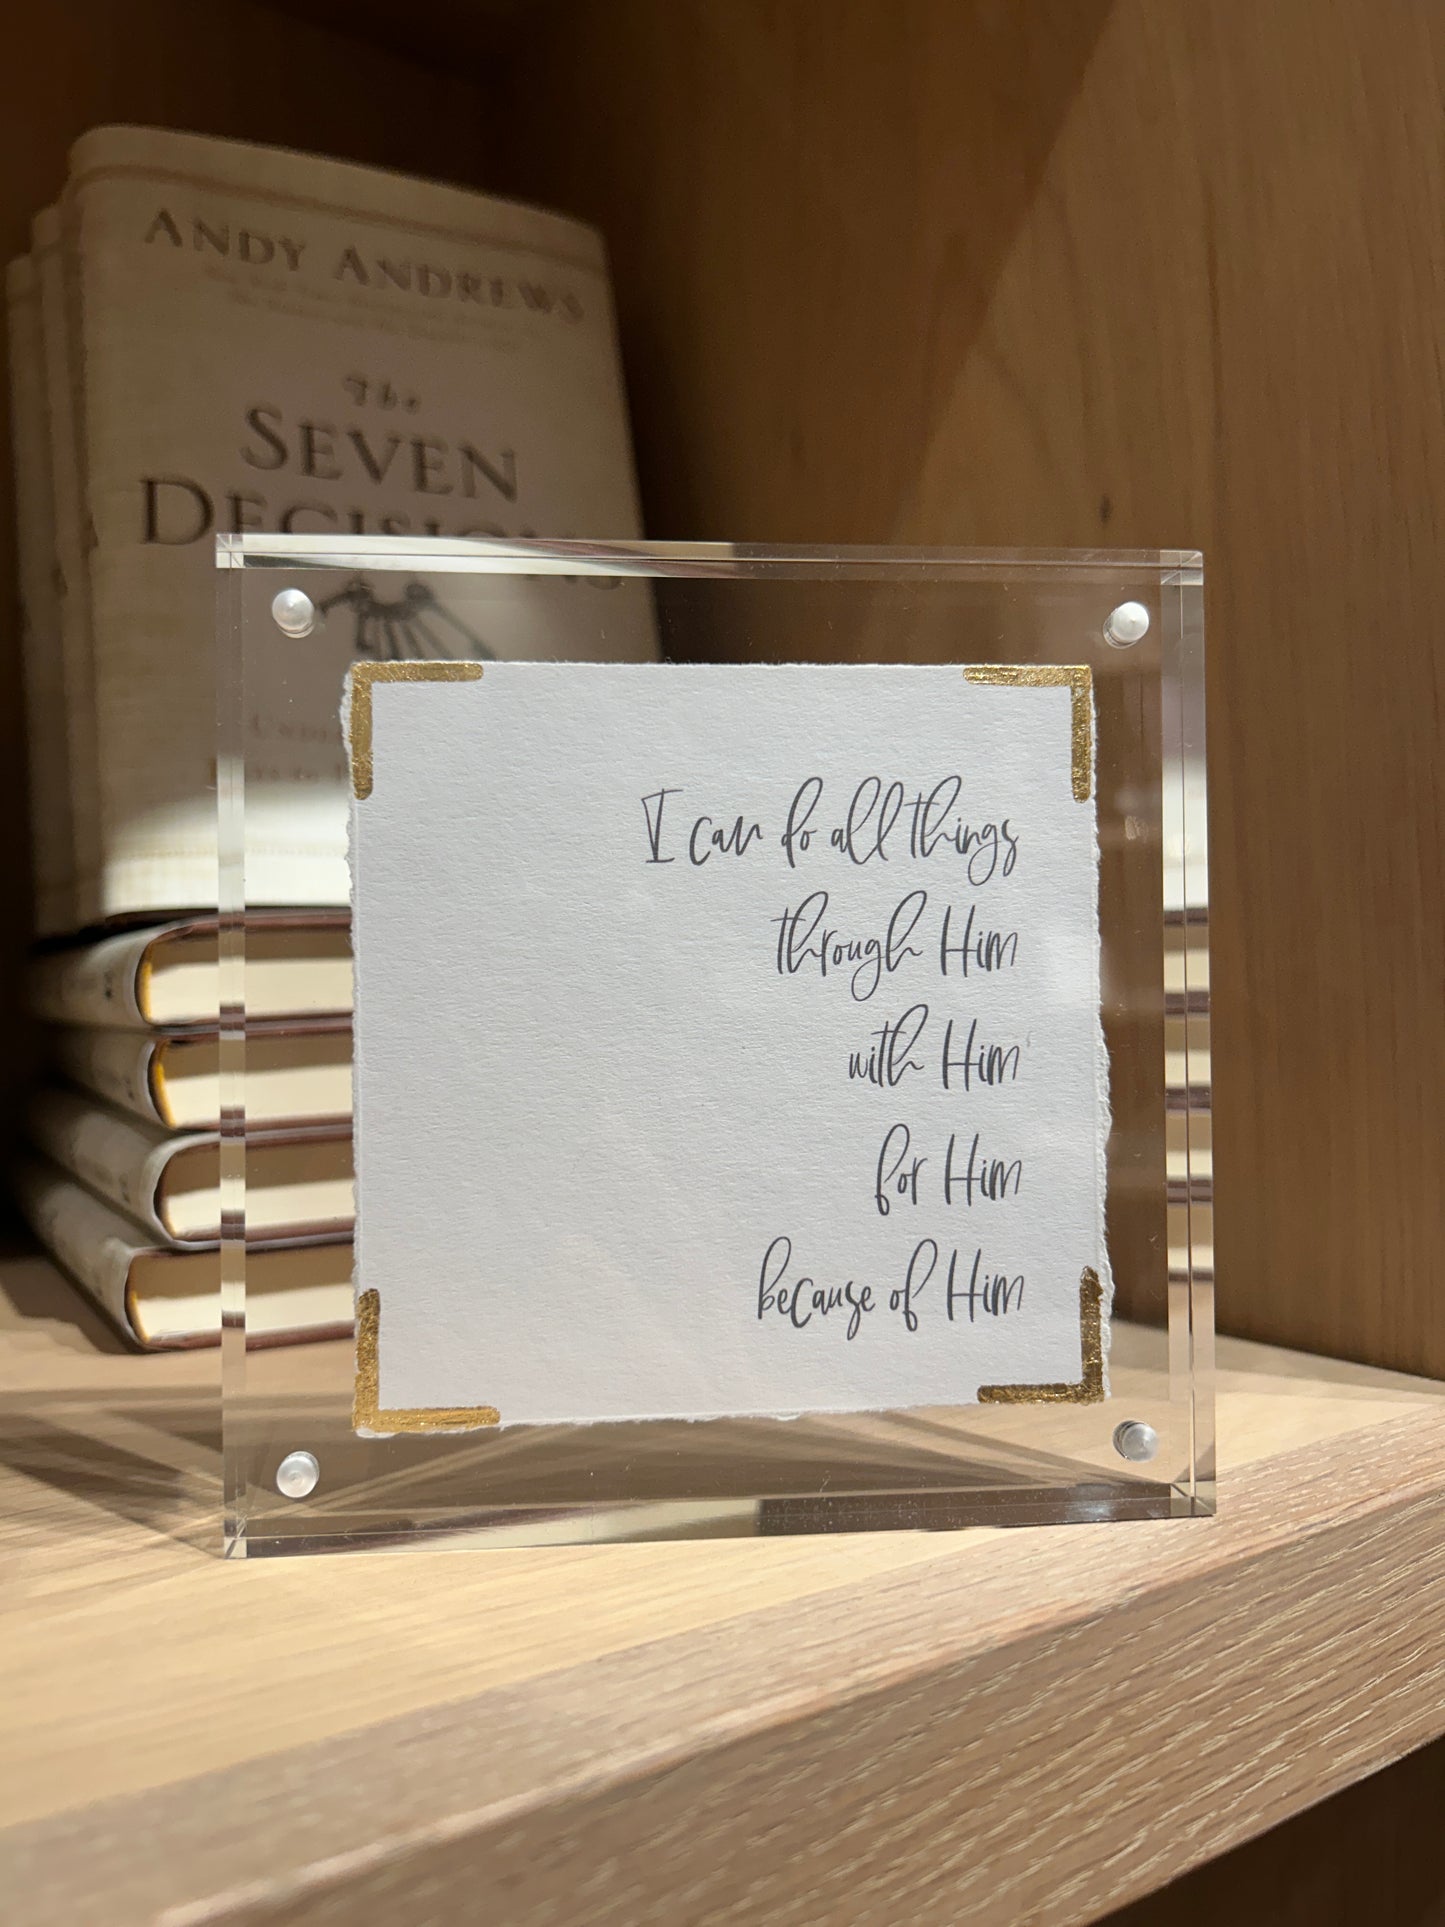 ANDY ANDREWS
The
SEVEN
DECISIONS
I can do all things
through Him
with Him
for Him
because of Him